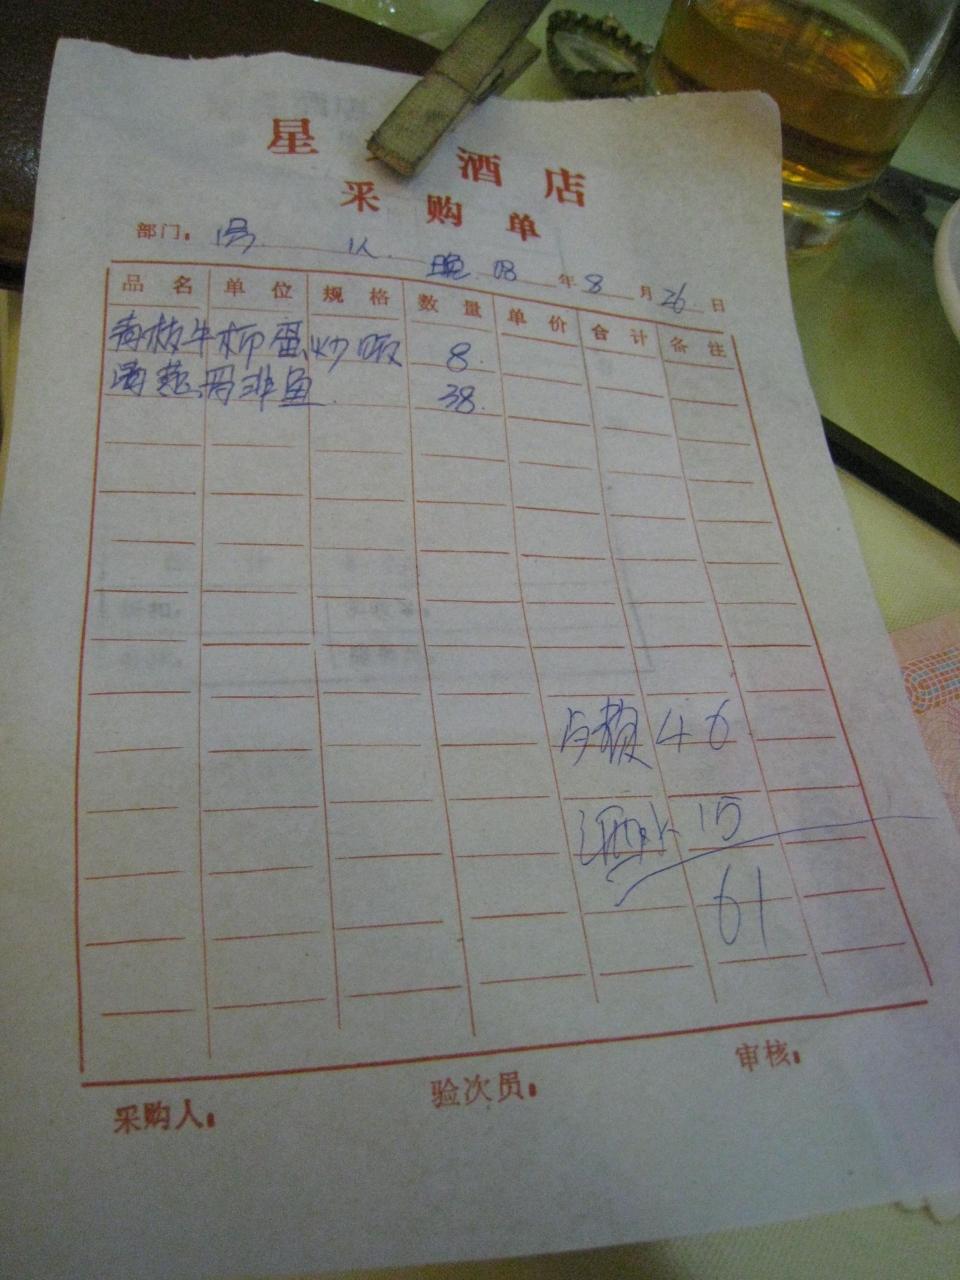 星 酒店
采购单
部门: 号 人 晚 08年8月26日
品名 单位 规格 数量 单价 合计 备注
枝牛柳蛋炒饭 8
非鱼 38
46
酒水 15
61
采购人: 验次员: 审核: